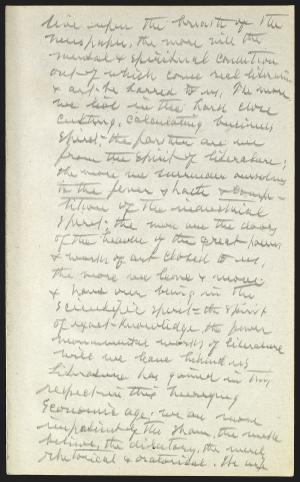 live upon the breath of the
newspaper, the more will the
mental & spiritual condition
out of which come real literature
& art be barred to us. The more
we live in the hard close
cutting, calculating business
spirit, the farther are we
from the spirit of literature;
the more we surrender ourselves
to the fever & haste & comp-
tition of the industrial
spirit; the more are the doors
of the heaven of the great poems
& works of art closed to us;
the more we live & move
& have our being in the
scientific spirit - the spirit
of exact knowledge, the fewer
monumental works of literature
will we leave behind us
Literature has gained in
respect in this hurrying
Economic age, we are more
impatient of the sham, the make
believe, the dilatory, the merely
rhetorical & oratorical. We are